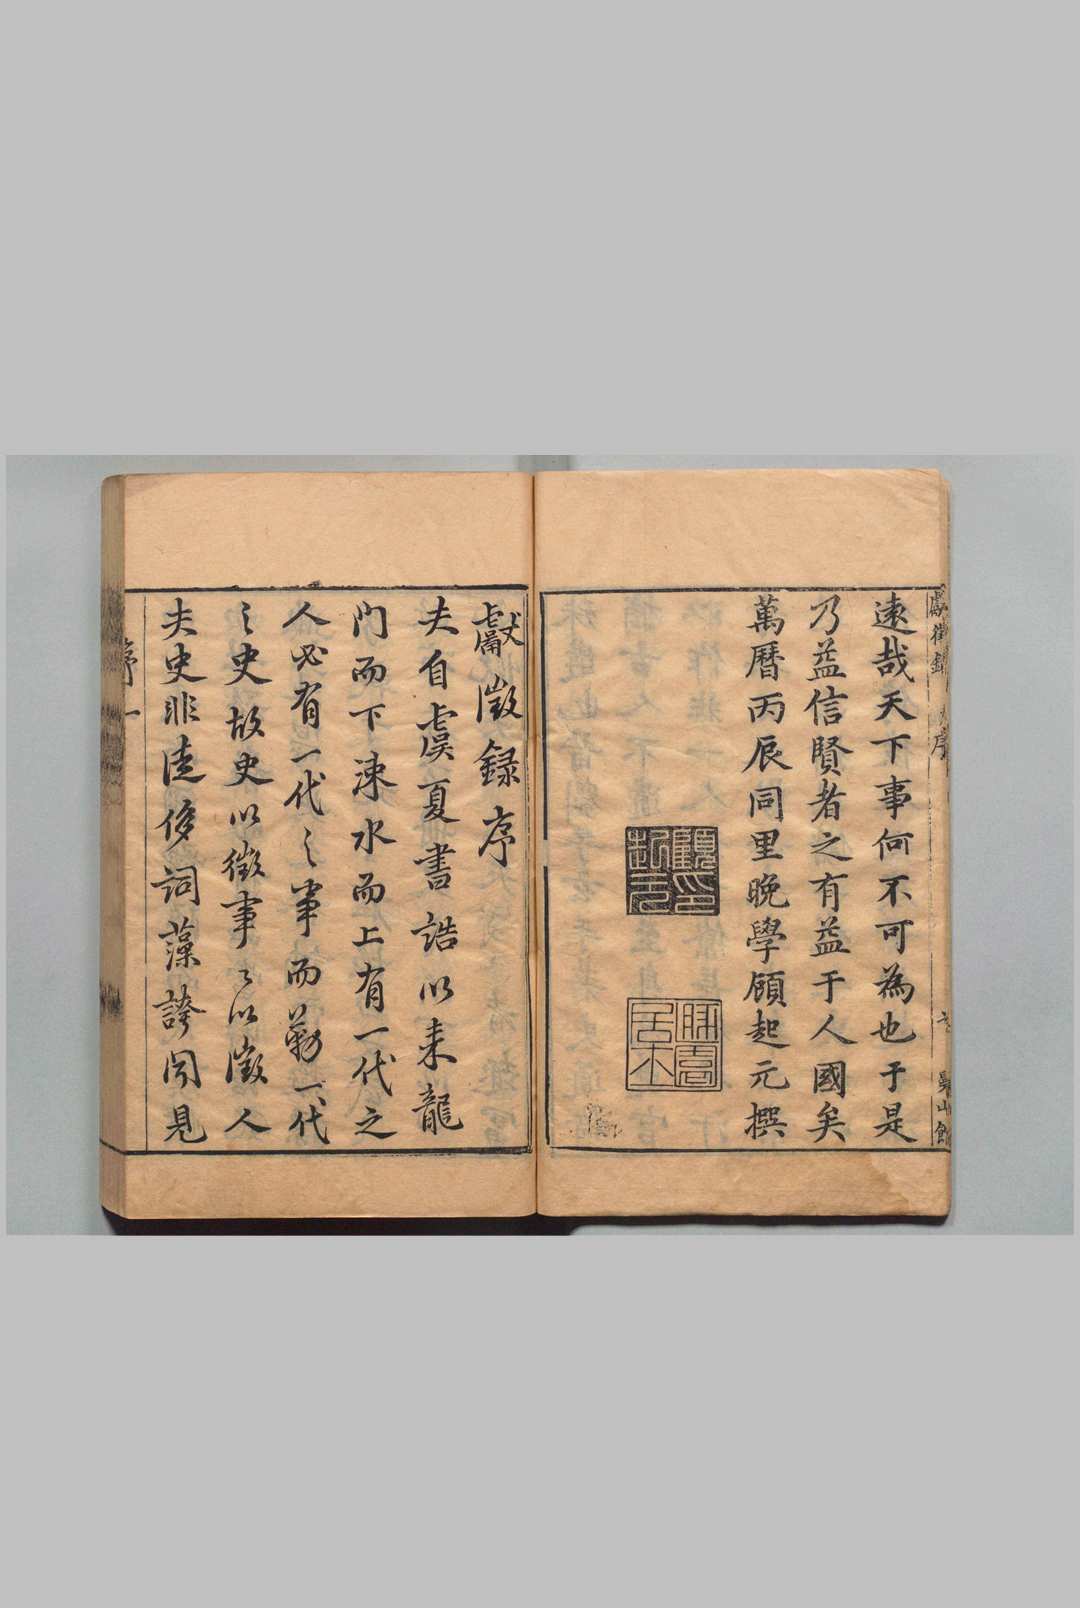 獻徵錄 序
曼山館
遠哉天下事何不可為也于是
乃益信賢者之有益于人國矣
萬曆丙辰同里晚學顧起元撰
顧印起元
獻徵錄序
夫自虞夏書誥以来龍
門而下涑水而上有一代之
人必有一代之事而勒一代
之史故史以徵事〻以徵人
夫史非徒侈詞藻誇聞見
序 一